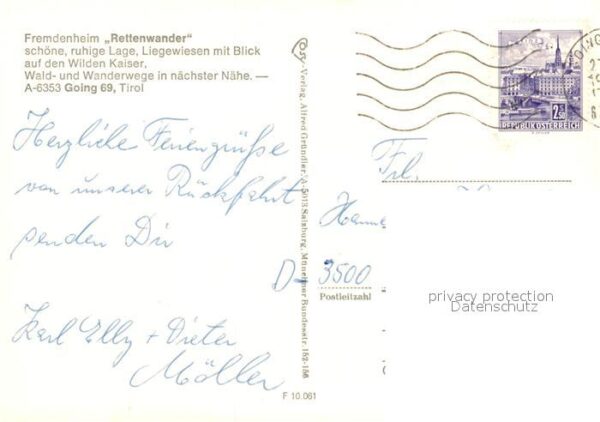 Fremdenheim „Rettenwander"
schöne, ruhige Lage, Liegewiesen mit Blick
auf den Wilden Kaiser,
Wald- und Wanderwege in nächster Nähe. —
A-6353 Going 69, Tirol
Herzliche Feriengrüße
von unserer Rückfahrt
senden Dir
Karl Elly + Dieter
Möller
Cosy-Verlag, Alfred Gründler, A-5013 Salzburg, Münchner Bundesstr. 152-156
F 10.061
2.50
REPUBLIK ÖSTERREICH
Frl.
Hanne
D-3500
Postleitzahl
privacy protection
Datenschutz